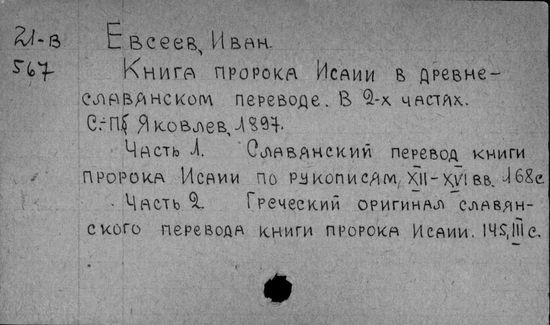 21-в Евсеев, Иван.
567 Книга пророка Исаии в древне-
славянском переводе. В 2-х частях.
С.-Пб Яковлев, 1897.
Часть 1. Славянский перевод книги
пророка Исаии по рукописям, XII-XVI вв. 168с
Часть 2. Греческий оригинал славян-
ского перевода книги пророка Исаии. 145, III с.